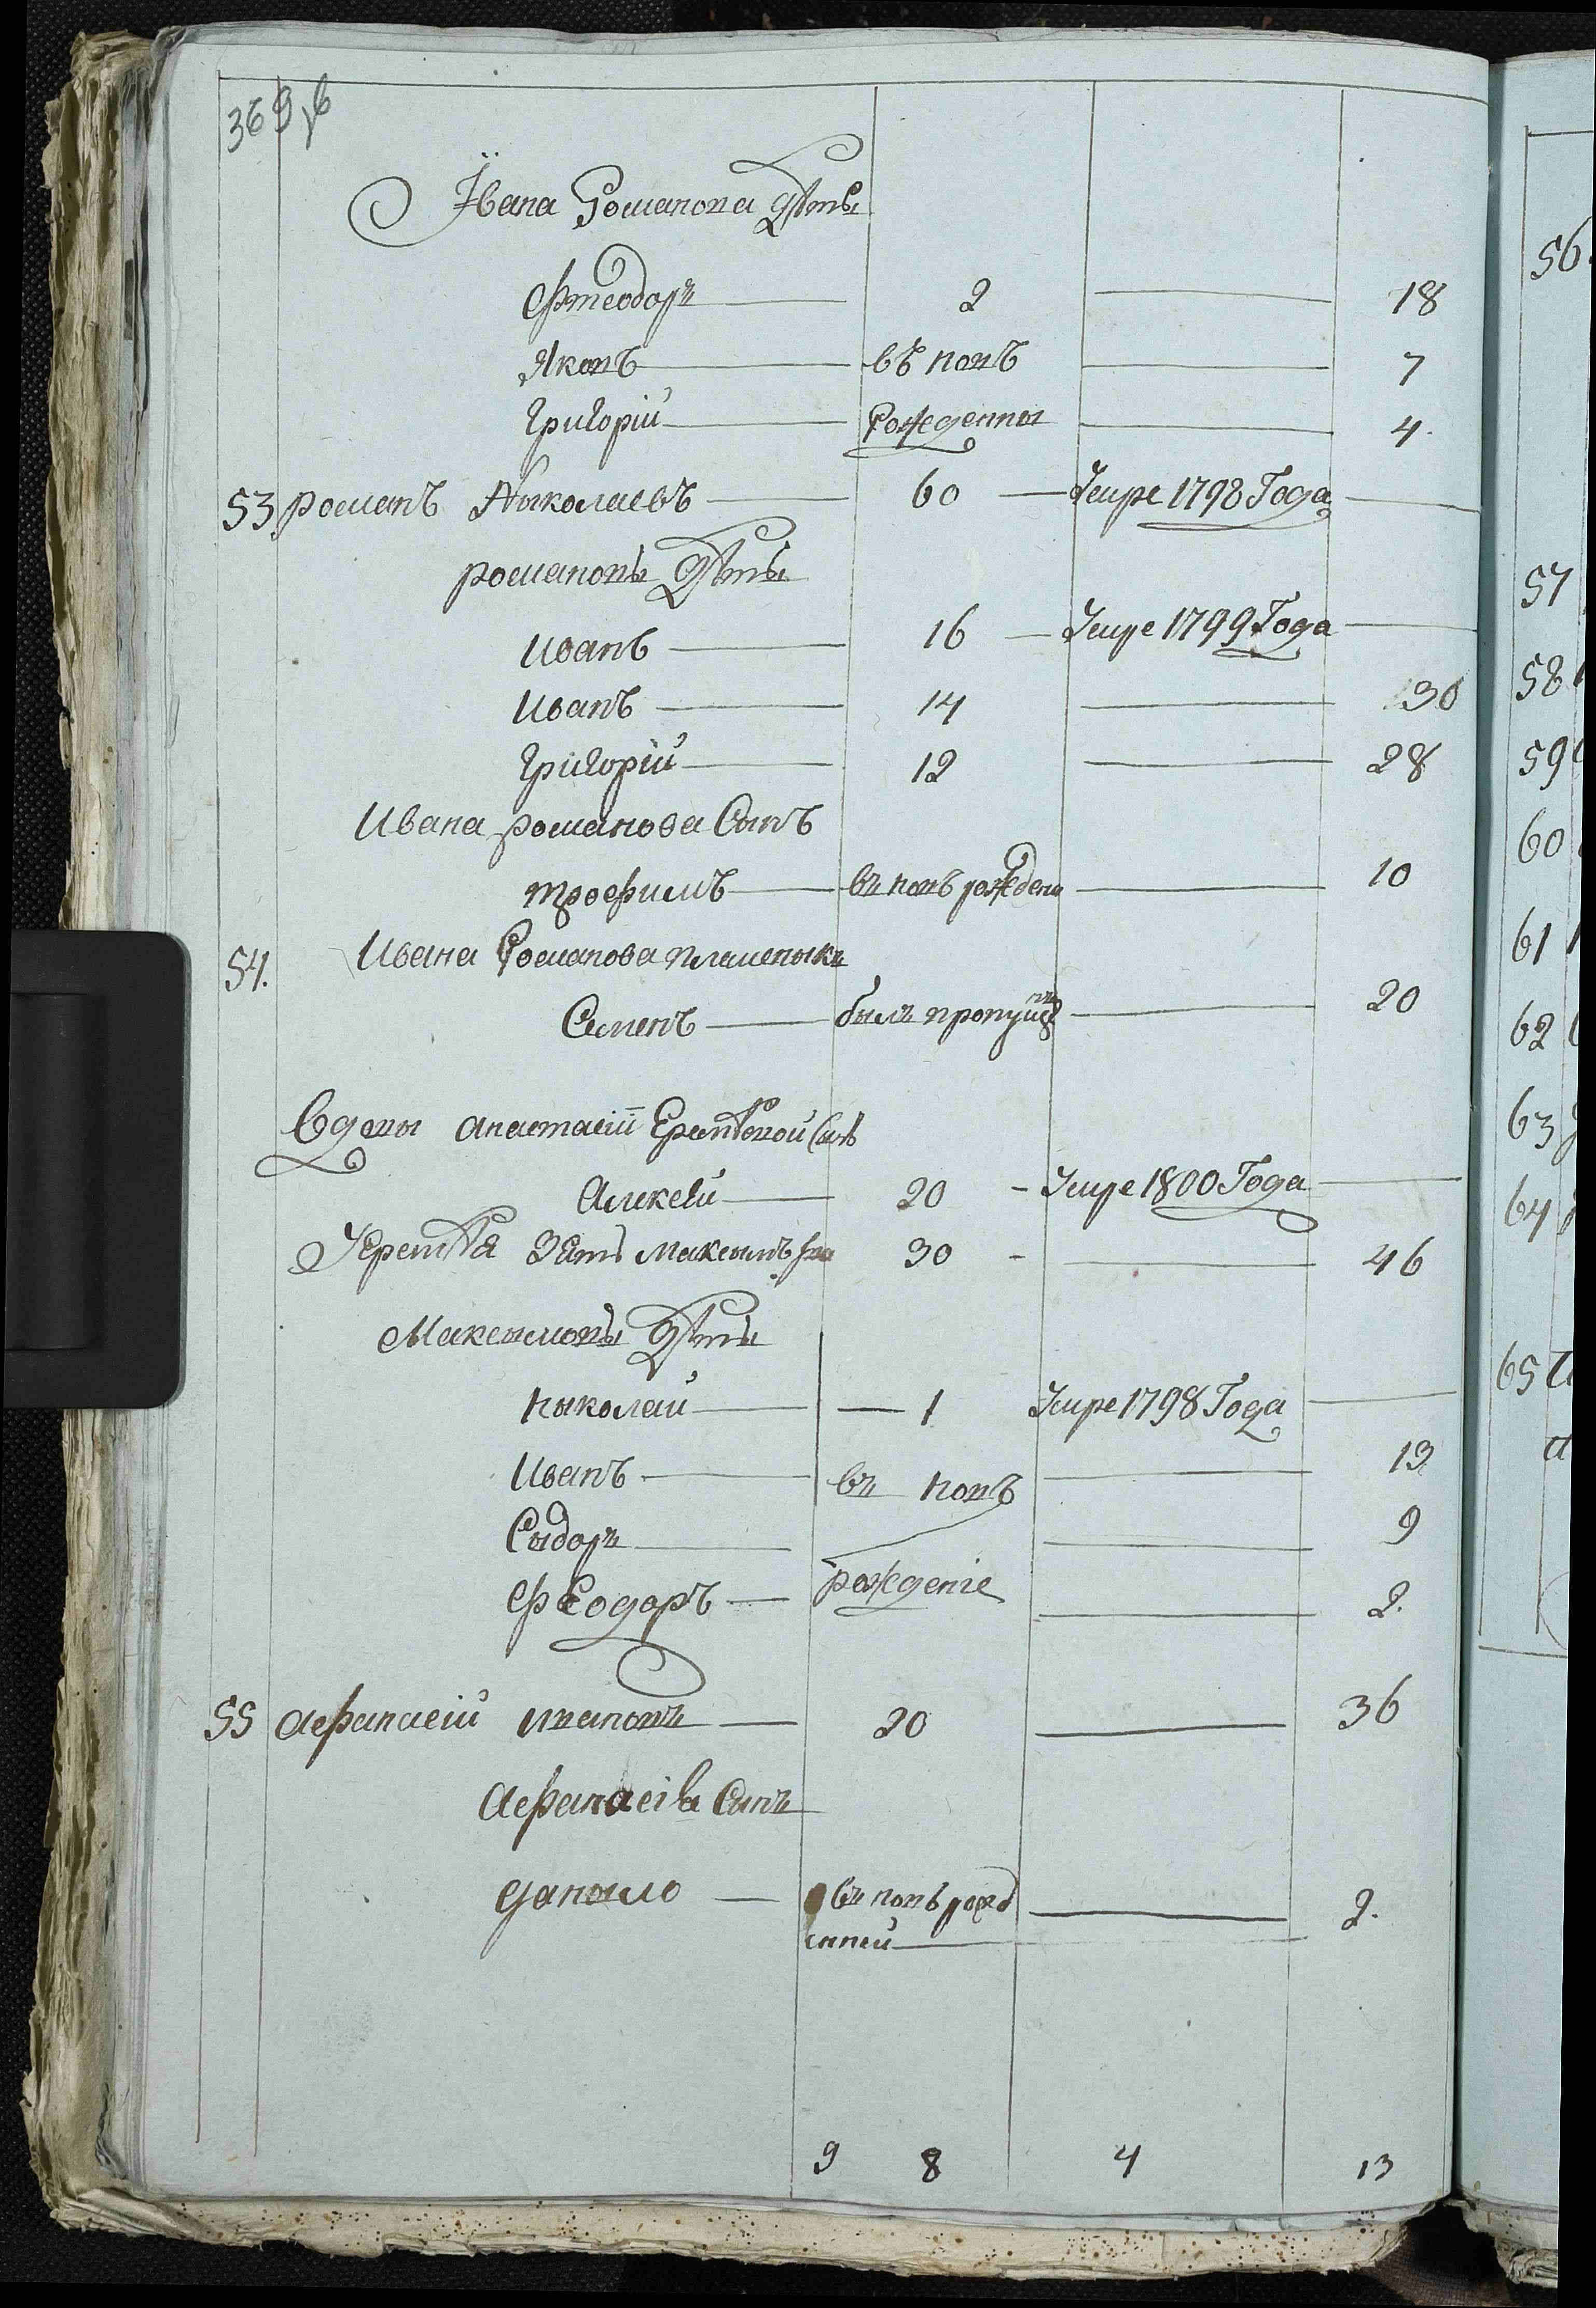 369
Ивана Романова дѣты
Фтеодоръ 2 18
Яковъ въ новъ 7
Григорій Рожденны 4.
53 романъ Ныколаевъ 60 Умре 1798 Года
романовы дѣты
Иванъ 16 Умре 1799 Года
Иванъ 14 30
Григорій 12 28
Ивана романова Сынъ
трофимъ въ новъ рожденъ 10
54. Ивана Романова племеныкъ
Семенъ былъ пропущ 20
Вдовы анастасіи Еремѣевой Сынъ
Алексѣй 20 Умре 1800 Года
Яремѣя Зять Максымъ 30 46
Максымовы дѣты
Ныколай 1 Умре 1798 Года
Иванъ въ новъ 13
Сыдоръ 9
Феодоръ рожденіе 2.
55 афанасій ивановъ 20 36
афанасіва Сынъ
даныло въ новъ рожд 2.
енней
9 8 4 13
56.
57
58
59
60
61
62
63
64
65